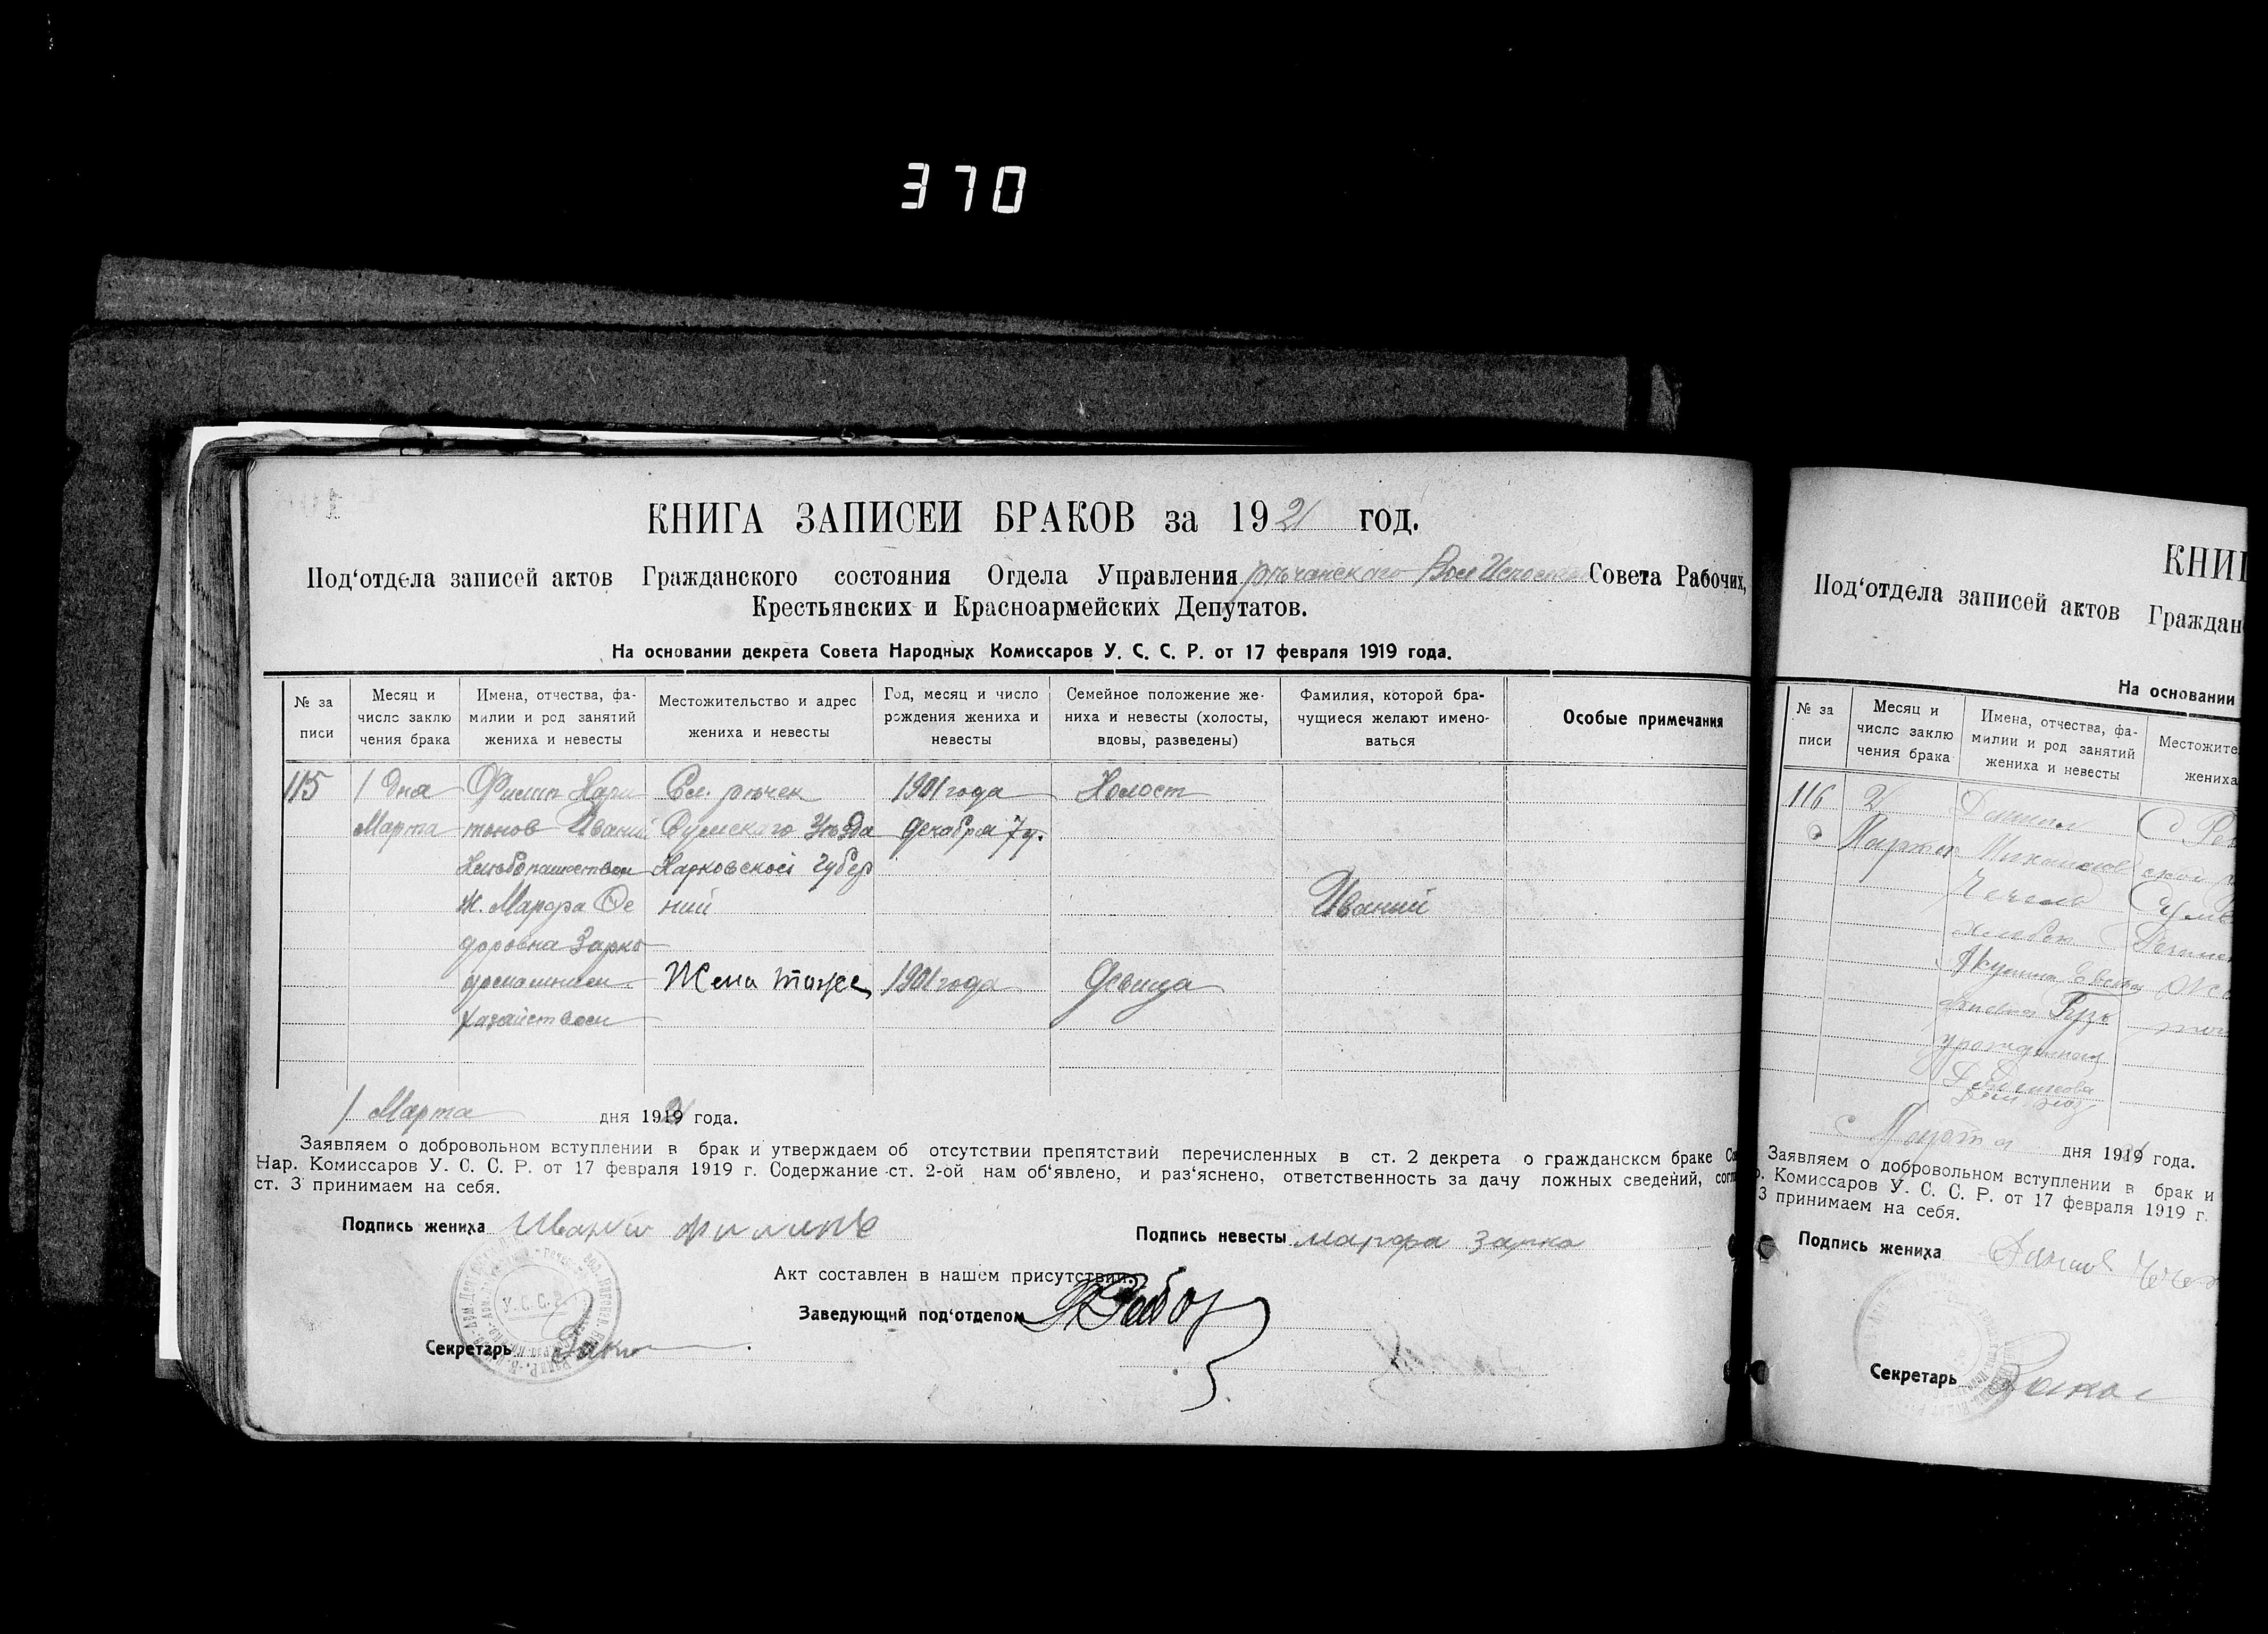 370
КНИГА ЗАПИСЕЙ БРАКОВ за 1921 год.
Под‘отдела записей актов Гражданского состояния Отдела Управления рѣчанского Совета Рабочих,
Крестьянских и Красноармейских Депутатов.
На основании декрета Совета Народных Комиссаров У. С. С. Р. от 17 февраля 1919 года.
№ за писи
Месяц и число заклю чения брака
Имена, отчества, фа- милии и род занятий жениха и невесты
Местожительство и адрес жениха и невесты
Год, месяц и число рождения жениха и невесты
Семейное положение же- ниха и невесты (холосты, вдовы, разведены)
Фамилия, которой бра- чущиеся желают имено- ваться
Особые примечания
115 1 дня Филип Хари Сл. рѣчек 1901 года Холост
Марта тонов Иваний Сумскаго Уѣзда Декабря 7 д.
Харковской губер
Ж. Марфа Фе ний Иваний
доровна Зарко
домашнем Жена тоже 1901 года Девица
хазайством
1 Марта дня 1921 года.
Заявляем о добровольном вступлении в брак и утверждаем об отсутствии препятствий перечисленных в ст. 2 декрета о гражданском браке Со
Нар. Комиссаров У. С. С. Р. от 17 февраля 1919 г. Содержание ст. 2-ой нам об‘явлено, и раз‘яснено, ответственность за дачу ложных сведений, согл
ст. 3 принимаем на себя.
Подпись жениха Иваній филипъ
Подпись невесты марфа зарко
Акт составлен в нашем присутствии:
Заведующий под‘отделом
У.С.С.Р.
Секретарь
КНИ
Под‘отдела записей актов Граждан
На основании
№ за писи
Месяц и число заклю чения брака
Имена, отчества, фа- милии и род занятий жениха и невесты
Местожите жениха
116 2 Даниил С Реч
Марта Михайлов ской
Чечель Сумс
Акулина
Гузь
урожденная
Марта дня 1921 года.
Заявляем о добровольном вступлении в брак и
р. Комиссаров У. С. С. Р. от 17 февраля 1919 г.
3 принимаем на себя.
Подпись жениха
Секретарь